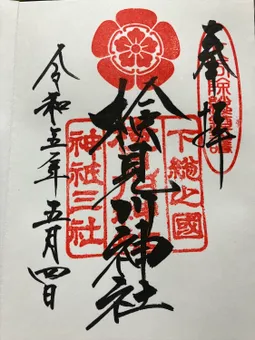 奉拝
下総之國
検見川神社
神祇三社
令和五年五月四日